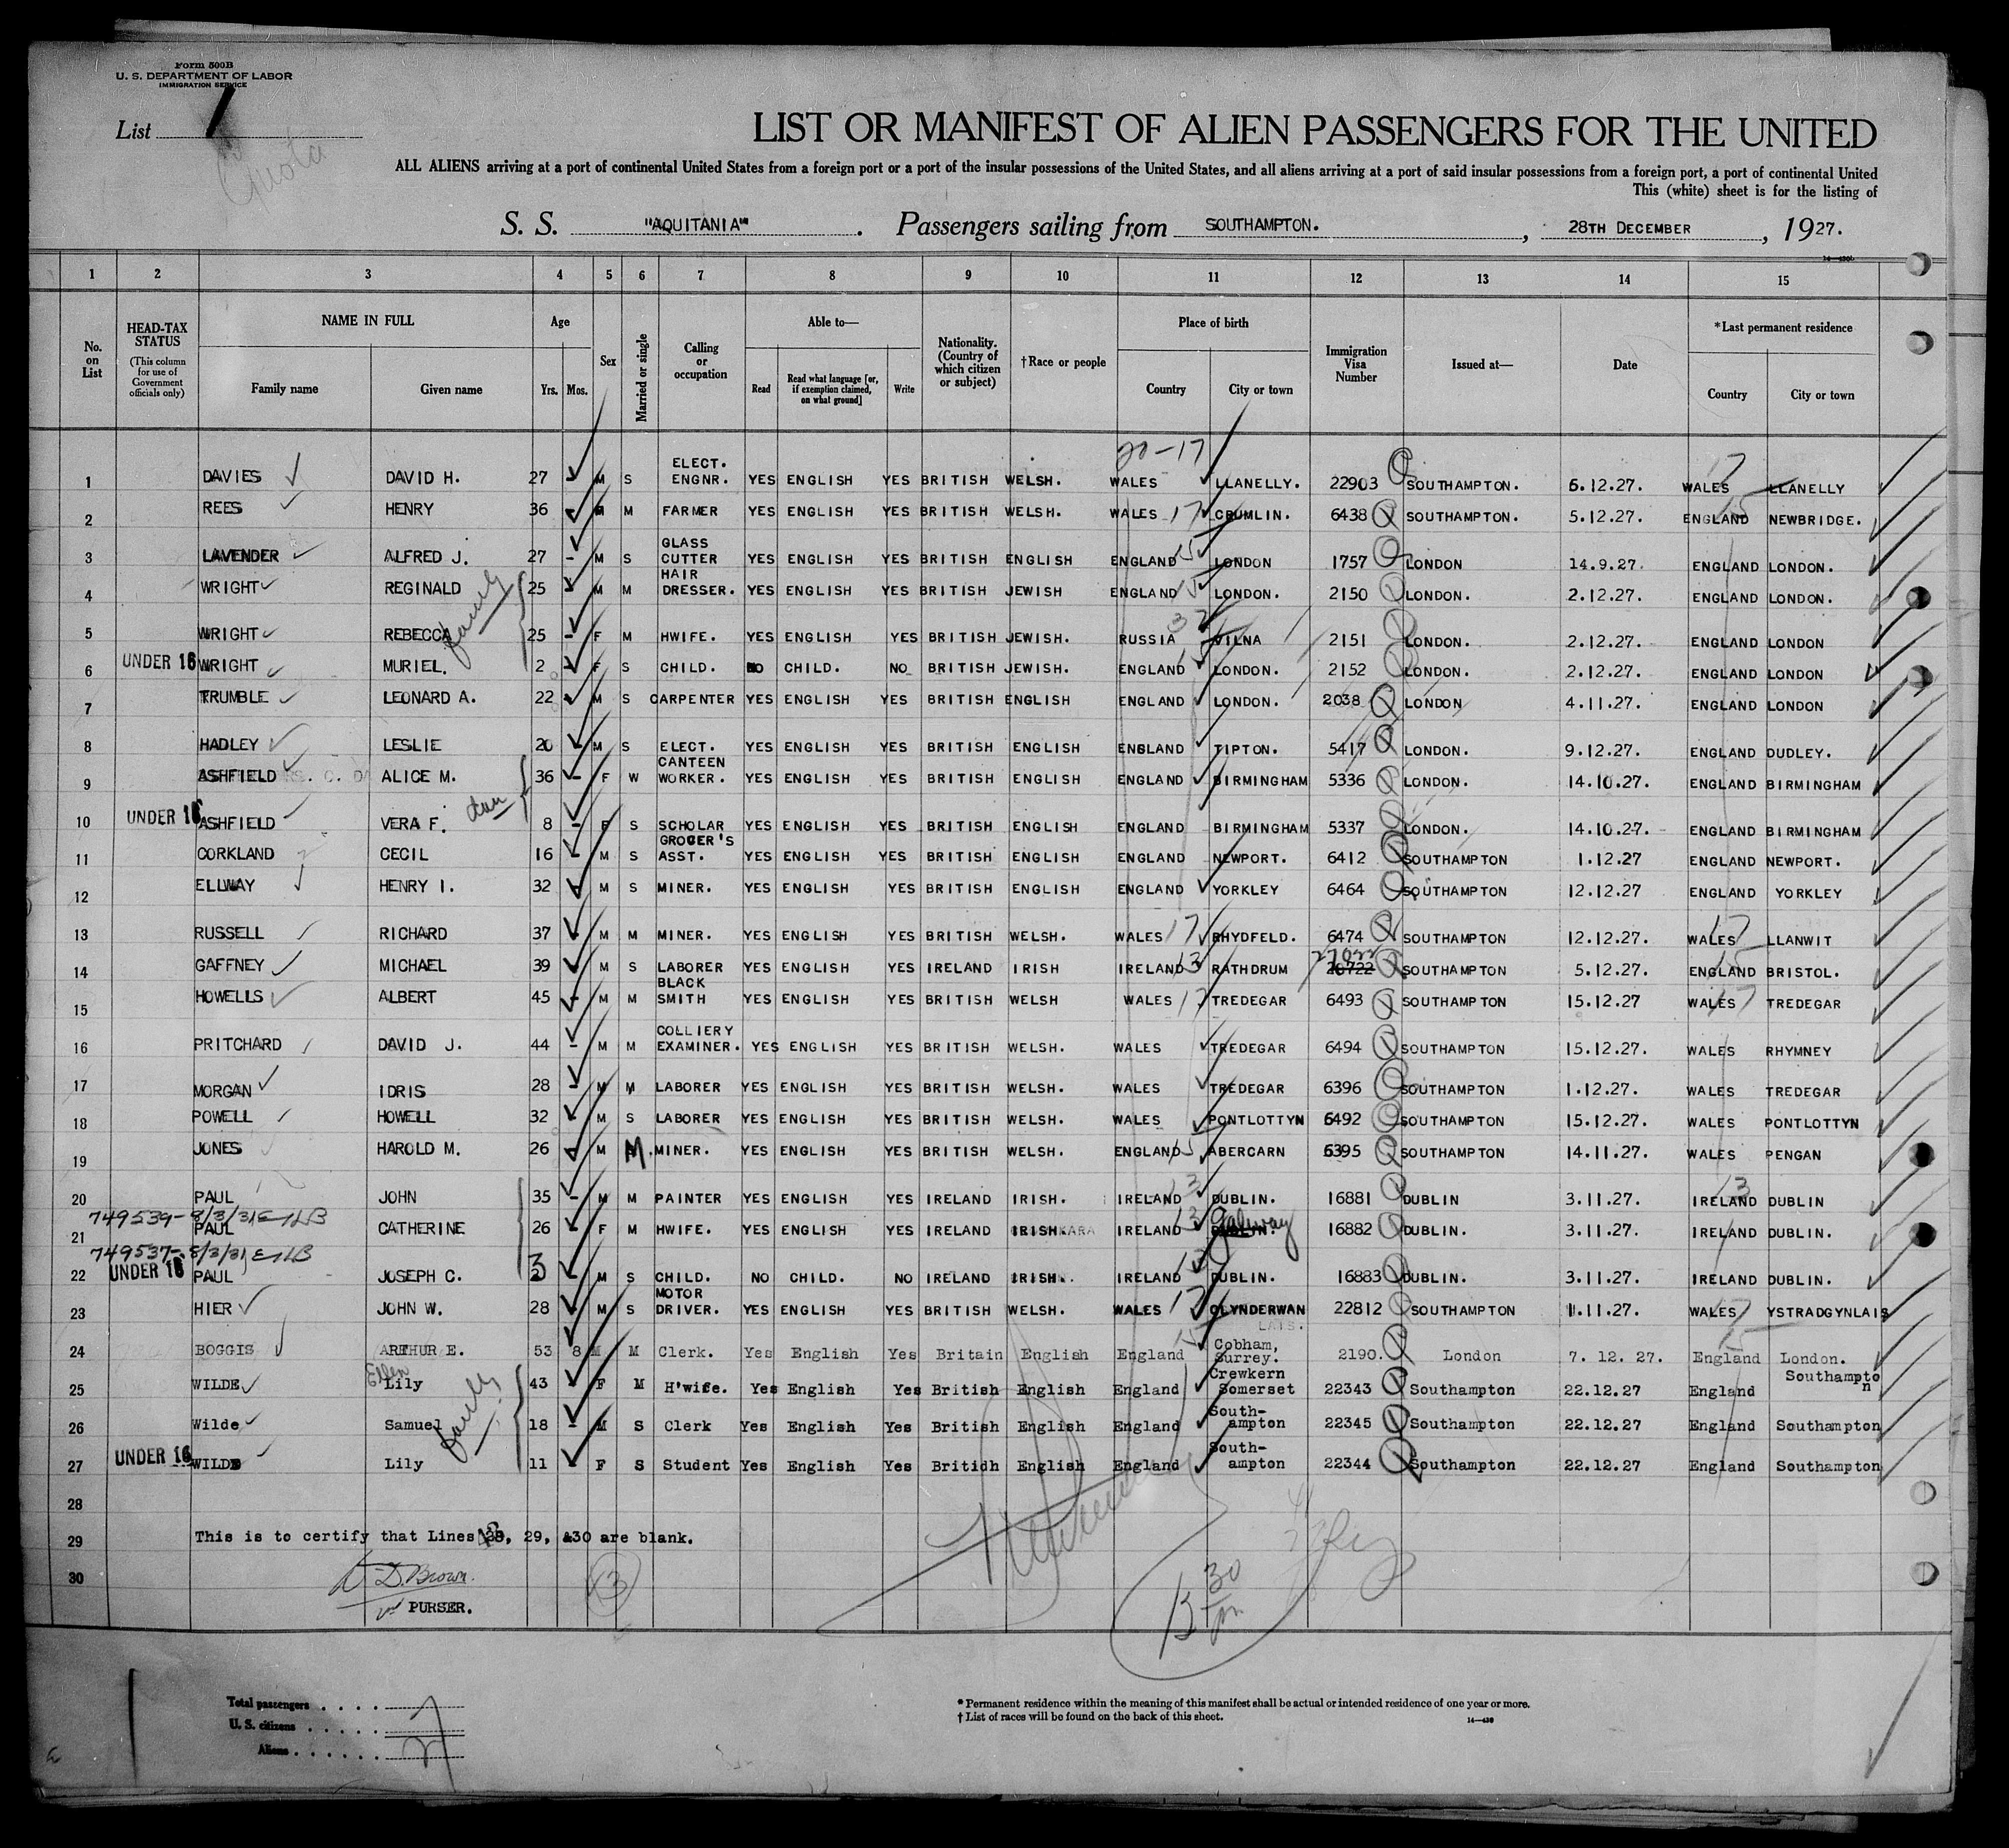 Form 500B
U. S. DEPARTMENT OF LABOR
IMMIGRATION SERVICE
List 1
Quota
LIST OR MANIFEST OF ALIEN PASSENGERS FOR THE UNITED
ALL ALIENS arriving at a port of continental United States from a foreign port or a port of the insular possessions of the United States, and all aliens arriving at a port of said insular possessions from a foreign port, a port of continental United
This (white) sheet is for the listing of
S. S. "AQUITANIA". Passengers sailing from SOUTHAMPTON. , 28TH DECEMBER , 1927.
1 2 3 4 5 6 7 8 9 10 11 12 13 14 15
No. on List
HEAD-TAX STATUS (This column for use of Government officials only)
NAME IN FULL Family name Given name
Age Yrs. Mos.
Sex
Married or single
Calling or occupation
Able to— Read Read what language [or, if exemption claimed, on what ground] Write
Nationality. (Country of which citizen or subject)
†Race or people
Place of birth Country City or town
Immigration Visa Number
Issued at—
Date
*Last permanent residence Country City or town
20-17
1 DAVIES DAVID H. 27 - M S ELECT. ENGNR. YES ENGLISH YES BRITISH WELSH. WALES LLANELLY. 22903 SOUTHAMPTON. 6.12.27. WALES 17 LLANELLY
2 REES HENRY 36 - M M FARMER YES ENGLISH YES BRITISH WELSH. WALES 17 CRUMLIN. 6438 SOUTHAMPTON. 5.12.27. ENGLAND 15 NEWBRIDGE.
3 LAVENDER ALFRED J. 27 - M S GLASS CUTTER YES ENGLISH YES BRITISH ENGLISH ENGLAND 15 LONDON 1757 LONDON 14.9.27. ENGLAND LONDON.
4 WRIGHT REGINALD family 25 - M M HAIR DRESSER. YES ENGLISH YES BRITISH JEWISH ENGLAND 15 LONDON. 2150 LONDON. 2.12.27. ENGLAND LONDON.
5 WRIGHT REBECCA 25 - F M HWIFE. YES ENGLISH YES BRITISH JEWISH. RUSSIA 32 VILNA 2151 LONDON. 2.12.27. ENGLAND LONDON
6 UNDER 16 WRIGHT MURIEL. 2 - F S CHILD. NO CHILD. NO BRITISH JEWISH. ENGLAND 15 LONDON. 2152 LONDON. 2.12.27. ENGLAND LONDON
7 TRUMBLE LEONARD A. 22 - M S CARPENTER YES ENGLISH YES BRITISH ENGLISH ENGLAND LONDON. 2038 LONDON 4.11.27. ENGLAND LONDON
8 HADLEY LESLIE 20 - M S ELECT. YES ENGLISH YES BRITISH ENGLISH ENGLAND TIPTON. 5417 LONDON. 9.12.27. ENGLAND DUDLEY.
9 ASHFIELD ALICE M. 36 - F W CANTEEN WORKER. YES ENGLISH YES BRITISH ENGLISH ENGLAND BIRMINGHAM 5336 LONDON. 14.10.27. ENGLAND BIRMINGHAM
10 UNDER 16 ASHFIELD VERA F. dau 8 - F S SCHOLAR YES ENGLISH YES BRITISH ENGLISH ENGLAND BIRMINGHAM 5337 LONDON. 14.10.27. ENGLAND BIRMINGHAM
11 CORKLAND CECIL 16 - M S GROCER'S ASST. YES ENGLISH YES BRITISH ENGLISH ENGLAND NEWPORT. 6412 SOUTHAMPTON 1.12.27 ENGLAND NEWPORT.
12 ELLWAY HENRY I. 32 - M S MINER. YES ENGLISH YES BRITISH ENGLISH ENGLAND YORKLEY 6464 SOUTHAMPTON 12.12.27 ENGLAND YORKLEY
13 RUSSELL RICHARD 37 - M M MINER. YES ENGLISH YES BRITISH WELSH. WALES 17 RHYDFELD. 6474 SOUTHAMPTON 12.12.27. WALES 17 LLANWIT
14 GAFFNEY MICHAEL 39 - M S LABORER YES ENGLISH YES IRELAND IRISH IRELAND 13 RATHDRUM 26722 SOUTHAMPTON 5.12.27. ENGLAND 15 BRISTOL.
15 HOWELLS ALBERT 45 - M M BLACK SMITH YES ENGLISH YES BRITISH WELSH WALES 17 TREDEGAR 6493 SOUTHAMPTON 15.12.27 WALES 17 TREDEGAR
16 PRITCHARD DAVID J. 44 - M M COLLIERY EXAMINER. YES ENGLISH YES BRITISH WELSH. WALES TREDEGAR 6494 SOUTHAMPTON 15.12.27. WALES RHYMNEY
17 MORGAN IDRIS 28 - M M LABORER YES ENGLISH YES BRITISH WELSH. WALES TREDEGAR 6396 SOUTHAMPTON 1.12.27. WALES TREDEGAR
18 POWELL HOWELL 32 - M S LABORER YES ENGLISH YES BRITISH WELSH. WALES PONTLOTTYN 6492 SOUTHAMPTON 15.12.27. WALES PONTLOTTYN
19 JONES HAROLD M. 26 - M M. MINER. YES ENGLISH YES BRITISH WELSH. ENGLAND 15 ABERCARN 6395 SOUTHAMPTON 14.11.27. WALES PENGAN
20 PAUL JOHN 35 - M M PAINTER YES ENGLISH YES IRELAND IRISH. IRELAND 13 DUBLIN. 16881 DUBLIN 3.11.27. IRELAND 13 DUBLIN
749539-8/3/31 ELB
21 PAUL CATHERINE 26 - F M HWIFE. YES ENGLISH YES IRELAND IRISH IRELAND 13 DUBLIN. Galway 16882 DUBLIN. 3.11.27. IRELAND DUBLIN.
749537-8/3/31 ELB
22 UNDER 16 PAUL JOSEPH C. 3 - M S CHILD. NO CHILD. NO IRELAND IRISH. IRELAND 13 DUBLIN. 16883 DUBLIN. 3.11.27. IRELAND DUBLIN.
23 HIER JOHN W. 28 - M S MOTOR DRIVER. YES ENGLISH YES BRITISH WELSH. WALES 17 CLYNDERWAN 22812 SOUTHAMPTON 11.11.27. WALES 17 YSTRADGYNLAIS
24 BOGGIS ARTHUR E. 53 8 M M Clerk. Yes English Yes Britain English England 15 Cobham, Surrey. 2190. London 7. 12. 27. England 15 London.
25 WILDE Ellen Lily 43 - F M H'wife. Yes English Yes British English England Crewkern Somerset 22343 Southampton 22.12.27 England Southampton
26 Wilde Samuel family 18 - M S Clerk Yes English Yes British English England South-ampton 22345 Southampton 22.12.27 England Southampton
27 UNDER 16 WILDE Lily 11 - F S Student Yes English Yes Britidh English England South-ampton 22344 Southampton 22.12.27 England Southampton
28
29 This is to certify that Lines 28, 29, &30 are blank.
30 D. Brown.
PURSER.
13
Total passengers
U. S. citizens
Aliens
* Permanent residence within the meaning of this manifest shall be actual or intended residence of one year or more.
† List of races will be found on the back of this sheet.
14—430